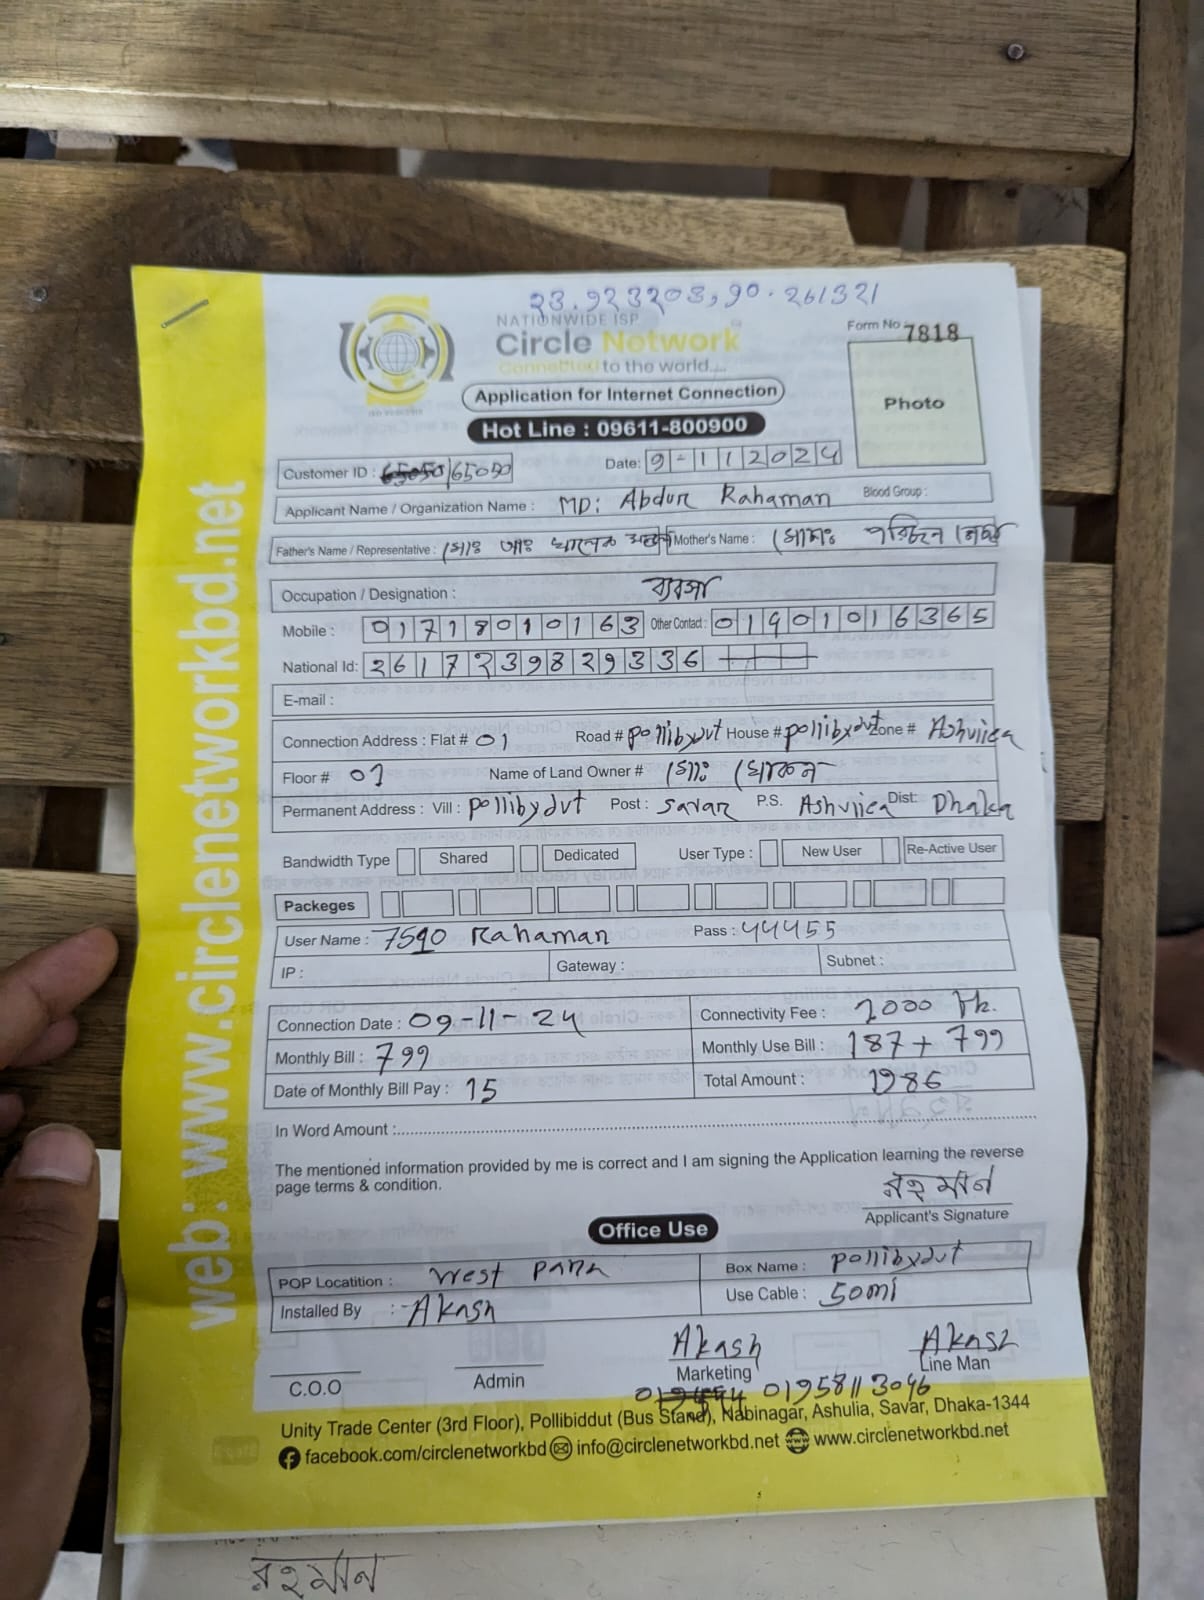 23.923203, 90.261321
NATIONWIDE ISP
Circle Network
Connected to the world....
Form No 7818
Photo
Application for Internet Connection
Hot Line : 09611-800900
Customer ID : 65050/65050
Date: 9-112024
Applicant Name / Organization Name : MD: Abdur Rahaman Blood Group :
Father's Name / Representative : মোঃ আঃ খালেক Mother's Name : মোসাঃ
Occupation / Designation : ব্যবসা
Mobile : 01718010163 Other Contact : 01901016365
National Id: 2617239829336
E-mail :
Connection Address : Flat # 01 Road # pollibydut House # pollibydut Zone # Ashuliea
Floor # 01 Name of Land Owner # মোঃ
Permanent Address : Vill : pollibydut Post : Savar P.S. Ashuliea Dist: Dhaka
Bandwidth Type Shared Dedicated User Type : New User Re-Active User
Packeges
User Name : 7590 Rahaman Pass : 44455
IP : Gateway : Subnet :
Connection Date : 09-11-24 Connectivity Fee : 1000 Tk.
Monthly Bill : 799 Monthly Use Bill : 187+799
Date of Monthly Bill Pay : 15 Total Amount : 1986
In Word Amount :
The mentioned information provided by me is correct and I am signing the Application learning the reverse
page terms & condition.
রহমান
Applicant's Signature
Office Use
POP Locatition : West para Box Name : pollibydut
Installed By : Akash Use Cable : 50mi
Akash Akash
C.O.O Admin Marketing Line Man
01958113046
Unity Trade Center (3rd Floor), Pollibiddut (Bus Stand), Nabinagar, Ashulia, Savar, Dhaka-1344
facebook.com/circlenetworkbd info@circlenetworkbd.net www.circlenetworkbd.net
web: www.circlenetworkbd.net
রহমান